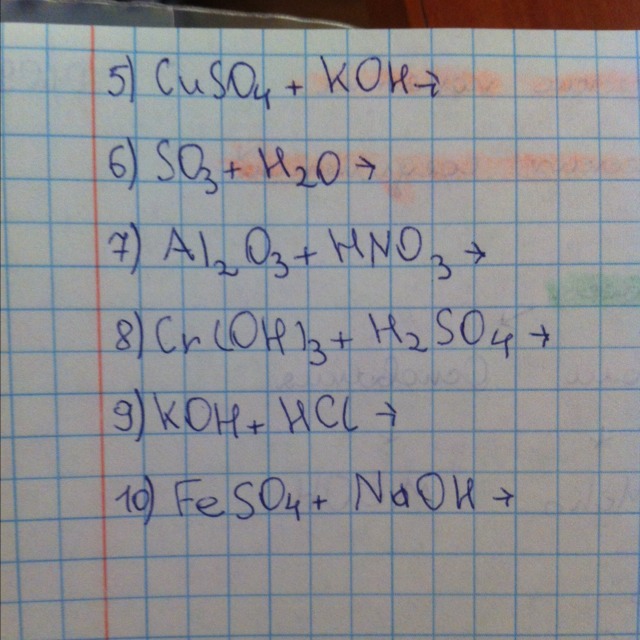 5) CuSO₄ + KOH →
6) SO₃ + H₂O →
7) Al₂O₃ + HNO₃ →
8) Cr(OH)₃ + H₂SO₄ →
9) KOH + HCl →
10) FeSO₄ + NaOH →